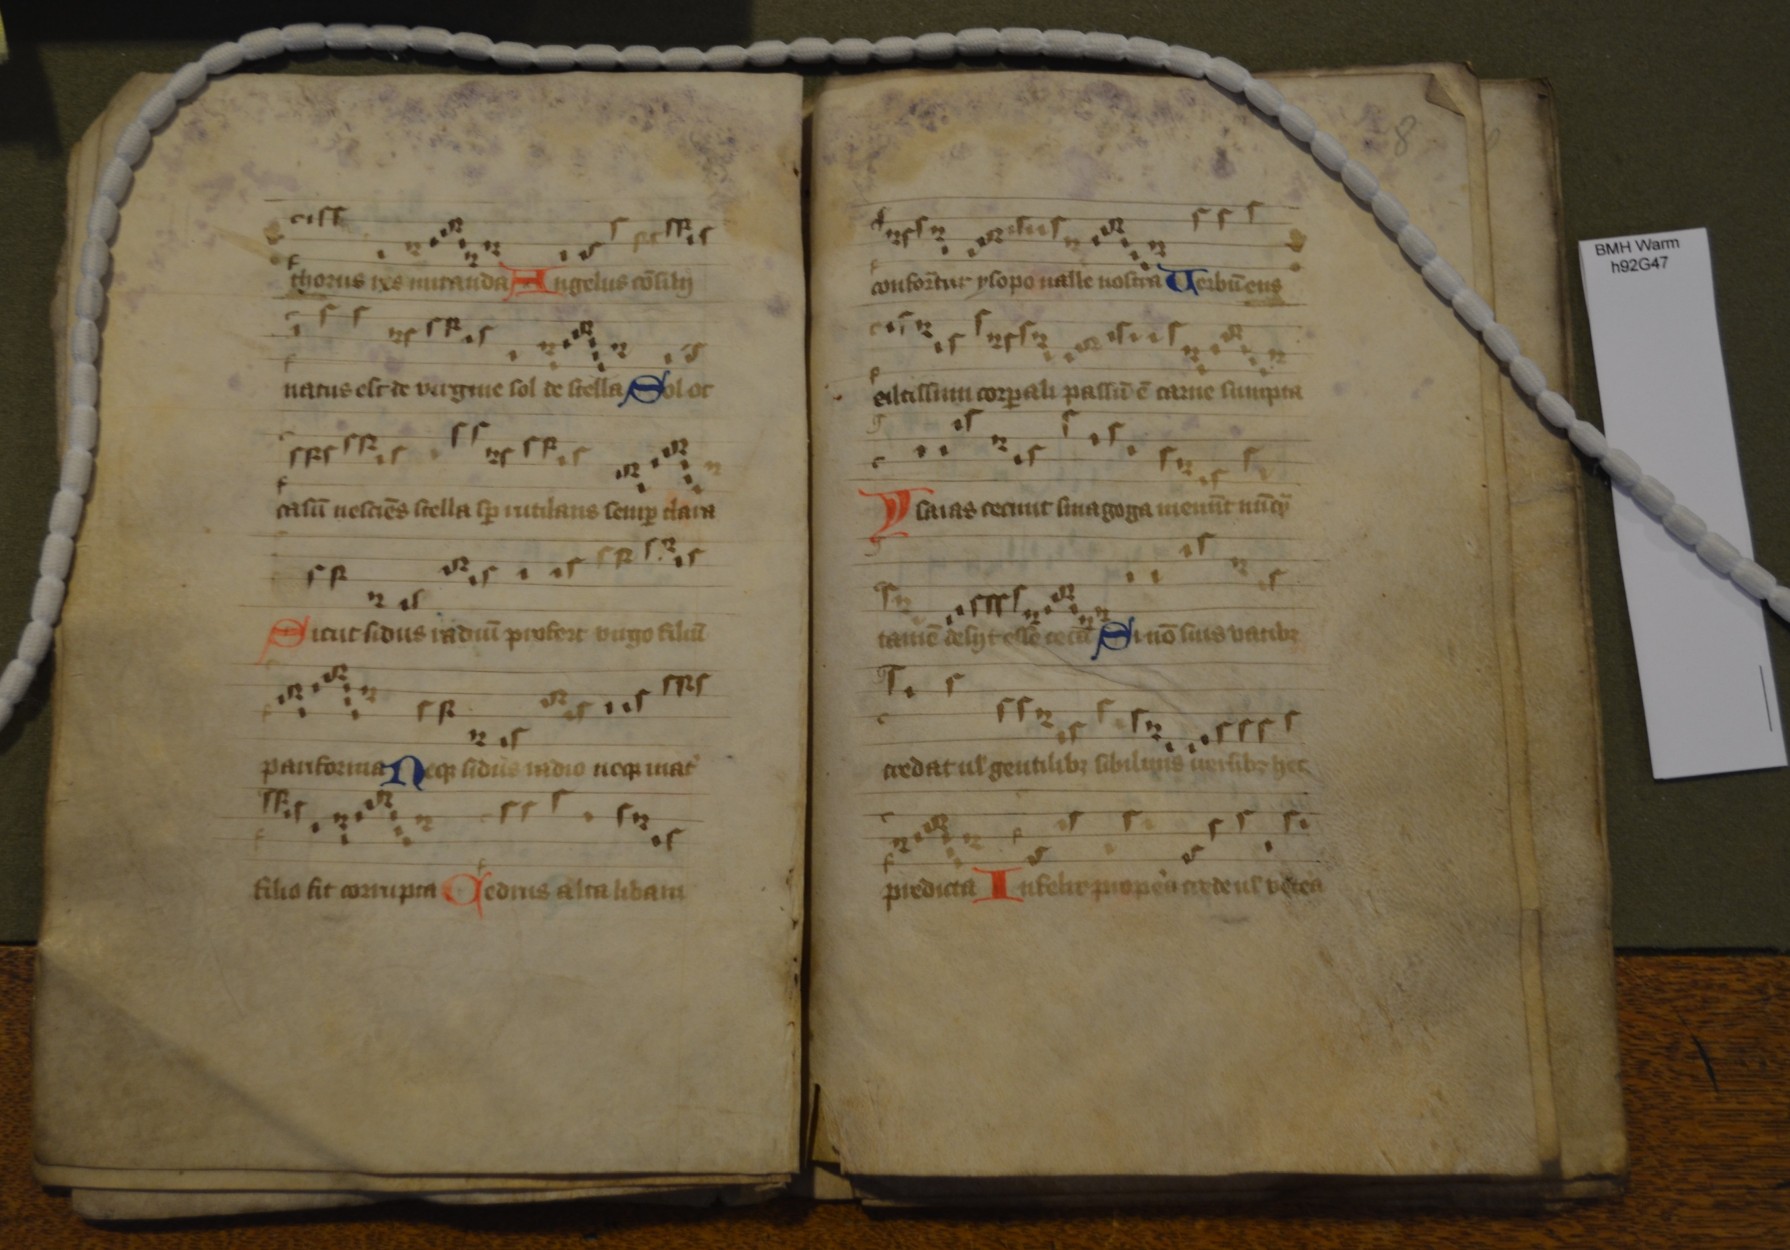 thorus res miranda Angelus cōsilij
natus est de virgine sol de stella Sol oc
casū nesciēs stella sp̄ rutilans semp̄ clara
Sicut sidus radiū profert virgo filiū
pari forma Neqꝫ sidus radio neqꝫ mat'
filio fit corrupta Cedrus alta libani
8
confor̄tur ysopo ualle nostra Verbū ens
altissimi corꝑali passū ē carne sumpta
Ysaias cecinit sinagoga meminit nū̄qꝫ
tamē desijt esse ceca Si nō suis vatibꝫ
credat ul' gentilibꝫ sibillinis uersibꝫ hec
predicta Infelix propera crede ul' vetera
BMH Warm
h92G47